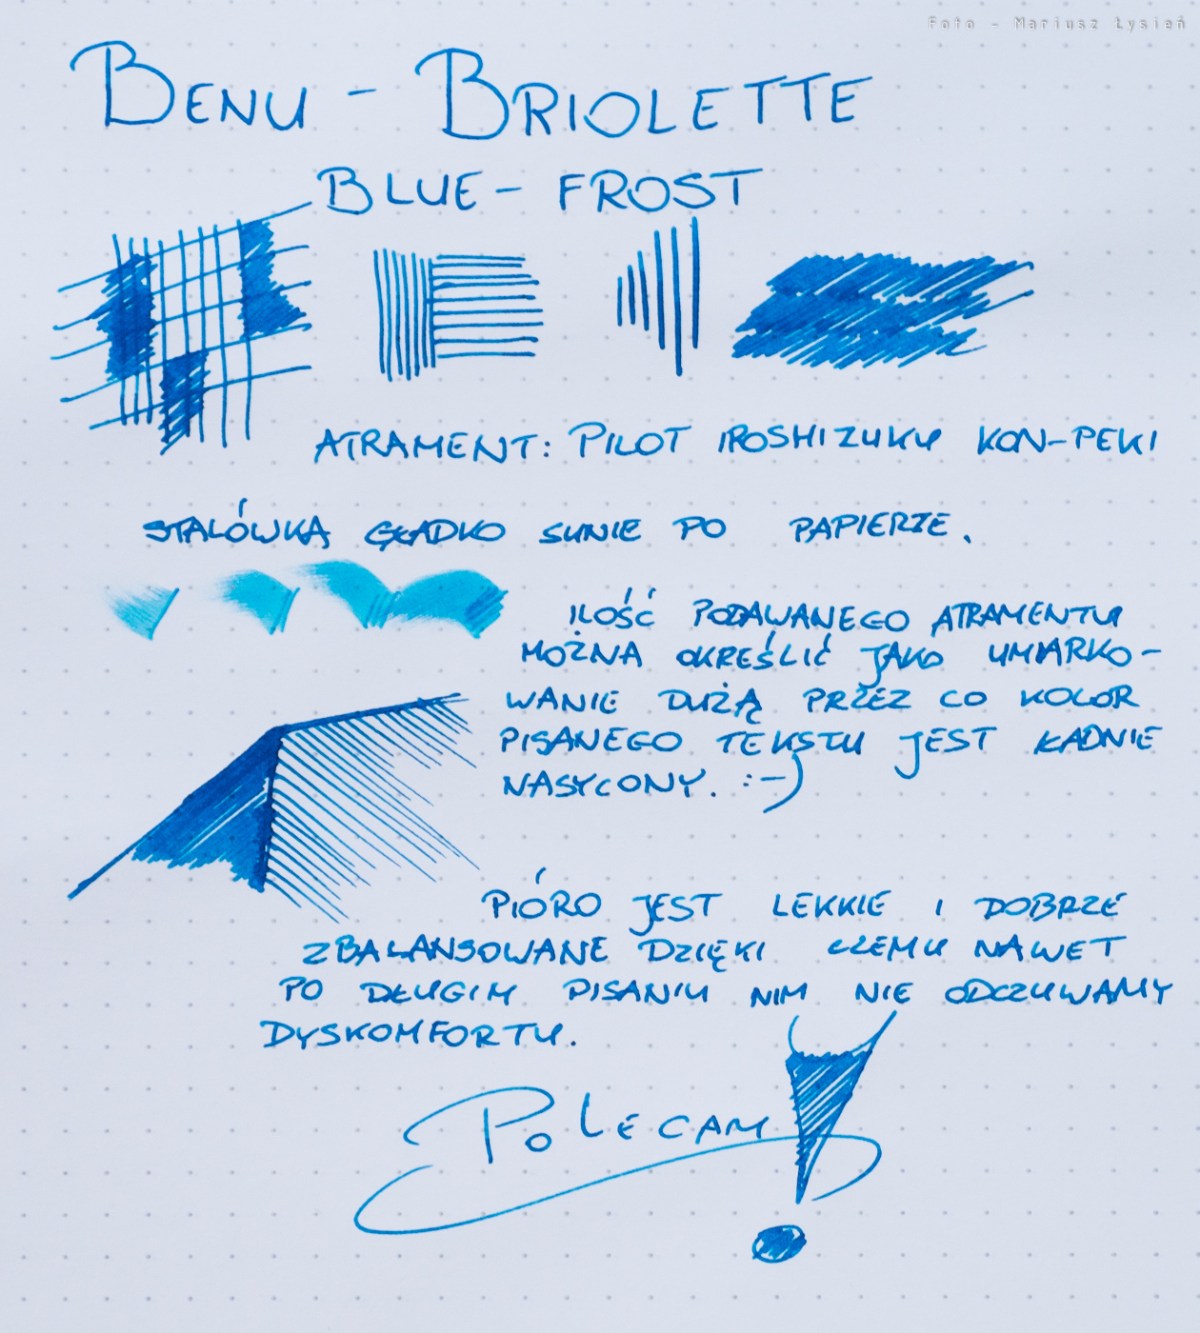 Foto - Mariusz Łysień
BENU - BRIOLETTE
BLUE - FROST
ATRAMENT: PILOT IROSHIZUKU KON-PEKI
STALÓWKA GŁADKO SUNIE PO PAPIERZE.
ILOŚĆ PODAWANEGO ATRAMENTU
MOŻNA OKREŚLIĆ JAKO UMIARKO-
WANIE DUŻĄ PRZEZ CO KOLOR
PISANEGO TEKSTU JEST ŁADNIE
NASYCONY. :-)
PIÓRO JEST LEKKIE I DOBRZE
ZBALANSOWANE DZIĘKI CZEMU NAWET
PO DŁUGIM PISANIU NIM NIE ODCZUWAMY
DYSKOMFORTU.
POLECAM!